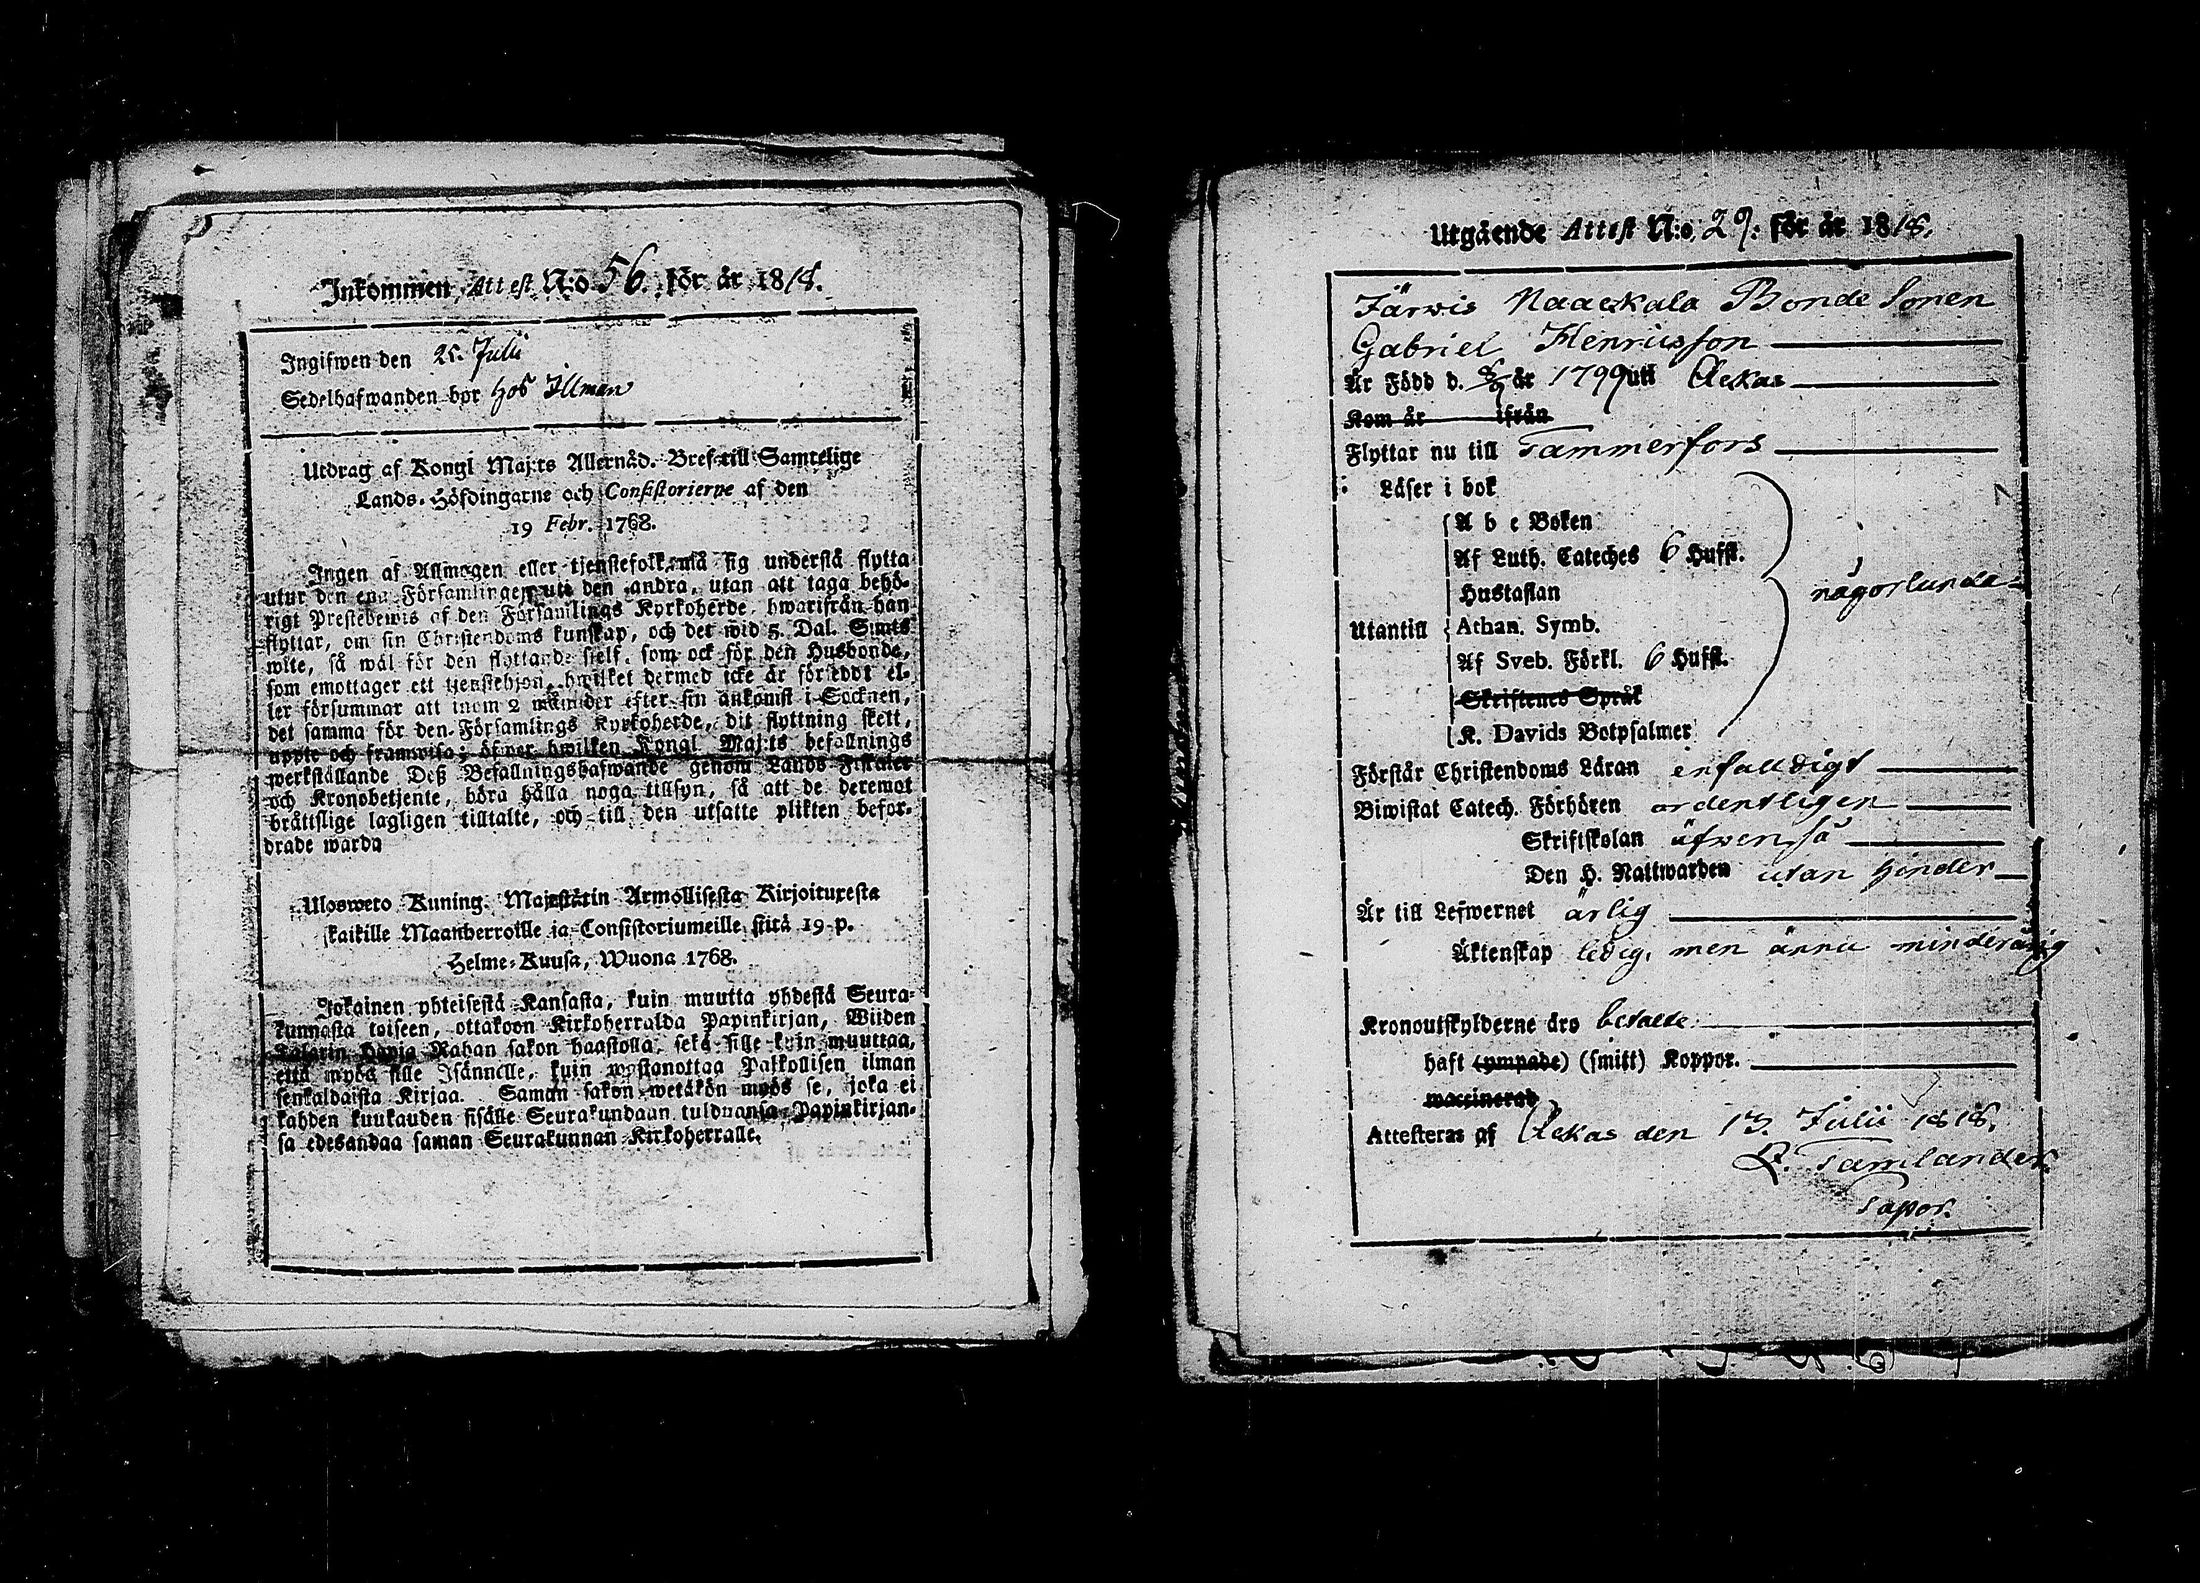 Inkommen, Attest N:o 56. för år 1818.
Ingifwen den 25. Julii
Sedelhafwanden bor hos Illman
Utdrag af Kongl Maj:ts Allernåd. Bref till Samtelige
Lands-Höfdingarne och Consistorierne af den
19 Febr. 1768.
Ingen af Allmogen eller tjenstefolk må sig understå flytta
utur den ena Församlingen uti den andra, utan att taga behö-
rigt Prestebewis af den Församlings Kyrkoherde, hwarifrån han
flyttar, om sin Christendoms kunskap, och det wid 5. Dal. S:mts
wite, så wäl för den flyttande sjelf, som ock för den Husbonde,
som emottager ett tjenstehjon, hwilket dermed icke är försedt el-
ler försummar att inom 2 månader efter sin ankomst i Socknen,
det samma för den Församlings Kyrkoherde, dit flyttning skett,
uppte och framwisa; öfwer hwilken Kongl Maj:ts befallnings
werkställande Deß Befallningshafwande genom Lands Fiscaler
och Kronobetjente, böra hålla noga tillsyn, så att de deremot
bråttslige lagligen tilltalte, och till den utsatte plikten befor-
drade warda
Ulosweto Kuning. Majestätin Armollisesta Kirjoituxesta
kaikille Maanherroille ja Consistoriumeille siitä 19 p.
Helme-Kuusa, Wuona 1768.
Jokainen yhteisestä Kansasta, kuin muutta yhdestä Seura-
kunnasta toiseen, ottakoon Kirkoherralda Papinkirjan, Wiiden
Talarin Hopia Rahan sakon haastolla, sekä sille kuin muuttaa,
että myös sille Isännelle, kuin wastanottaa Palkollisen ilman
senkaldaista Kirjaa. Saman sakon wetäkön myös se, joka ei
kahden kuukauden sisälle Seurakundaan tulduansa Papinkirjan-
sa edesandaa saman Seurakunnan Kirkoherralle.
Utgående Attest N:o. 29. för år 1818.
Järvis Naackala Bonde Sonen
Gabriel Henricsson
Är Född d. år 1799 uti Ackas
Kom år ifrån
Flyttar nu till Tammerfors
Läser i bok
A b c Boken
Af Luth. Cateches 6 Hufst.
Hustaflan
någorlunda
Utantill Athan. Symb.
Af Sveb. Förkl. 6 Hufst.
Skriftenes Språk
K. Davids Botpsalmer
Förstår Christendoms Läran enfalldigt
Biwistat Catech. Förhören ordentligen
Skriftskolan äfwen så
Den H. Nattwarden utan hinder
Är till Lefwernet ärlig
Äktenskap ledig, men ännu minderårig
Kronoutskylderne äro betalte
haft (ympade) (smitt) Koppor.
waccinerad
Attesteras af Ackas den 13. Julii 1818.
Tamlander.